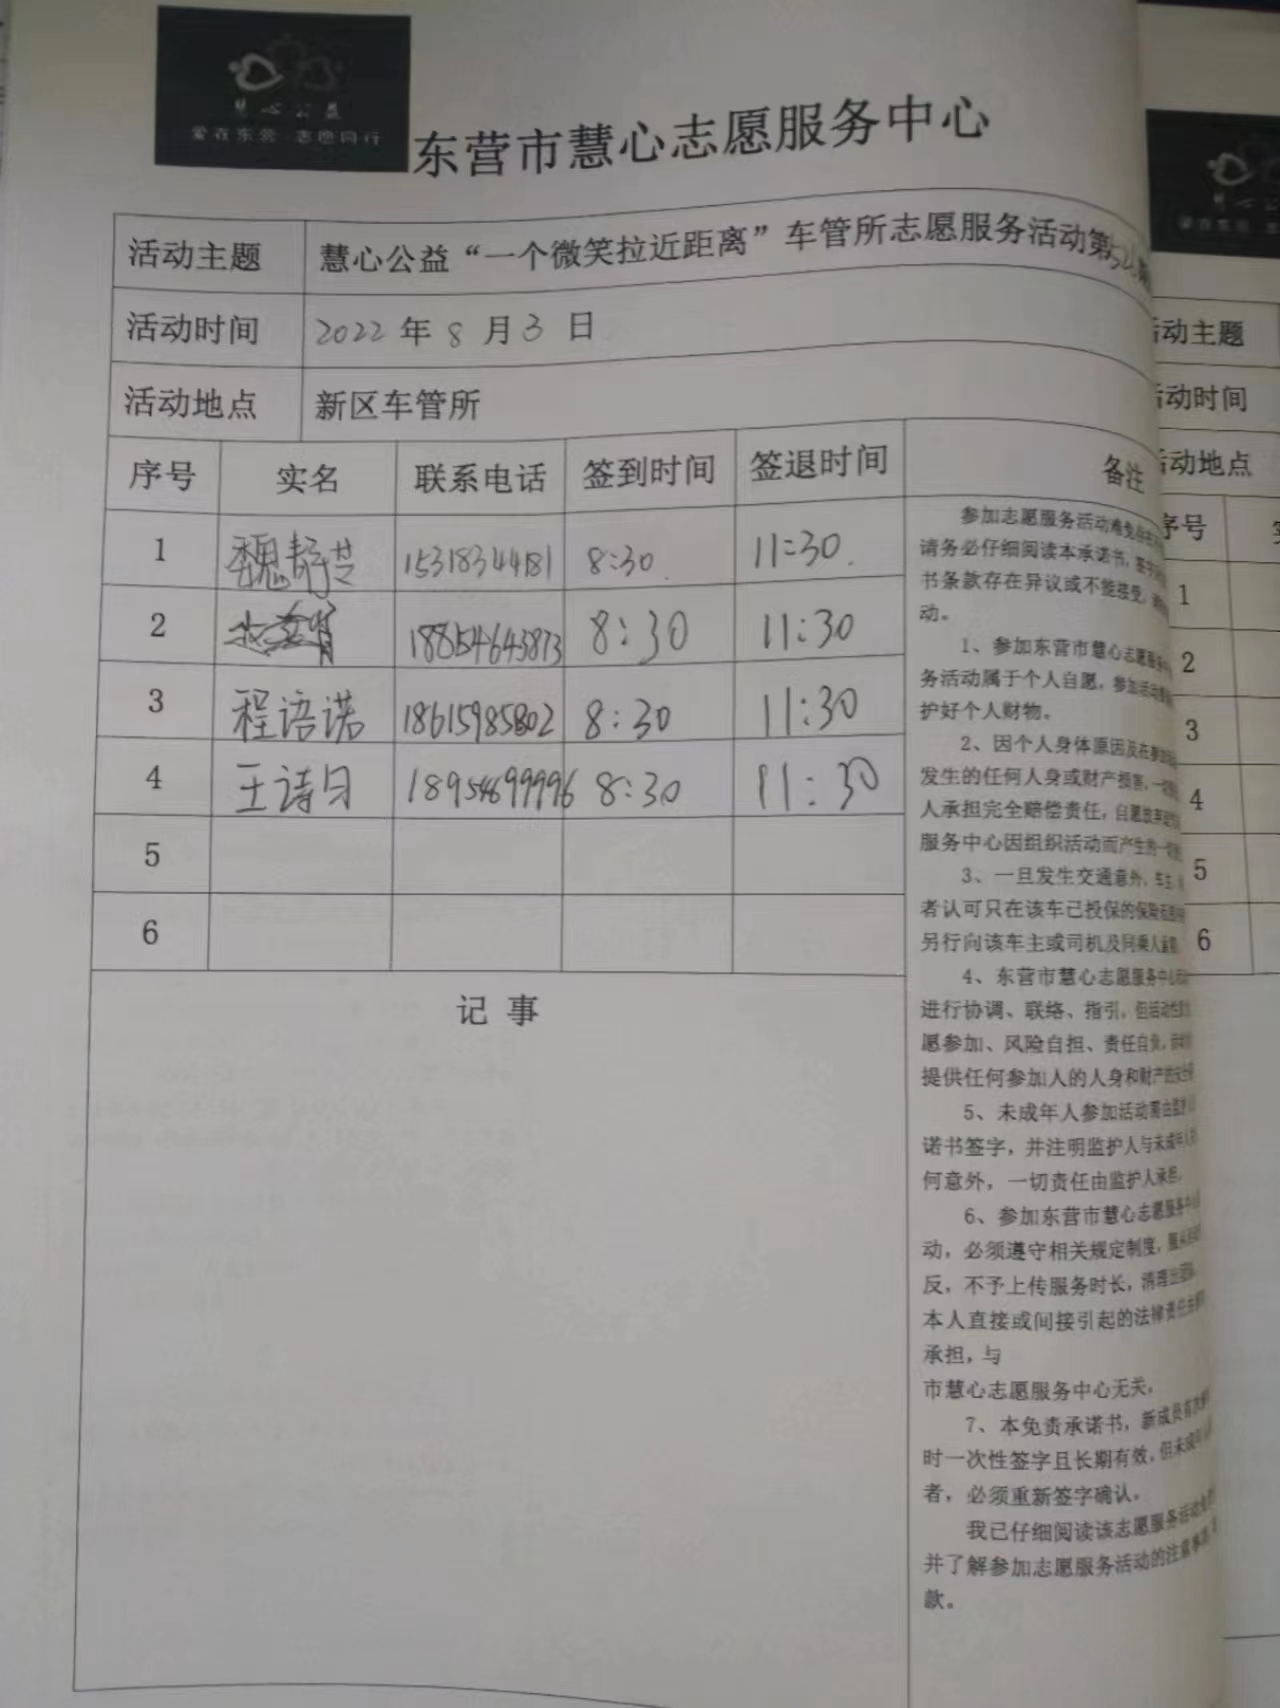 慧心公益
爱在东营 志愿同行
东营市慧心志愿服务中心
活动主题 慧心公益“一个微笑拉近距离”车管所志愿服务活动第
活动时间 2022年8月3日
活动地点 新区车管所
序号 实名 联系电话 签到时间 签退时间 备注
1 魏静芸 15318344181 8:30 11:30
2 18854643873 8:30 11:30
3 程语诺 18615985802 8:30 11:30
4 王诗月 18954699996 8:30 11:30
5
6
记事
参加志愿服务活动难免存在
请务必仔细阅读本承诺书,签字
书条款存在异议或不能接受,
动。
1、参加东营市慧心志愿服务中
务活动属于个人自愿,参加活动
护好个人财物。
2、因个人身体原因及在参加
发生的任何人身或财产损害,一
人承担完全赔偿责任,自愿放弃
服务中心因组织活动而产生的一切
3、一旦发生交通意外,车主、
者认可只在该车已投保的保险
另行向该车主或司机及同乘人
4、东营市慧心志愿服务中心
进行协调、联络、指引,但活动性质
愿参加、风险自担、责任自负,
提供任何参加人的人身和财产的安全
5、未成年人参加活动需由监护
诺书签字,并注明监护人与未成年人
何意外,一切责任由监护人承担。
6、参加东营市慧心志愿服务中心
动,必须遵守相关规定制度,服从
反,不予上传服务时长,清理出
本人直接或间接引起的法律责任由
承担,与
市慧心志愿服务中心无关。
7、本免责承诺书,新成员首次
时一次性签字且长期有效,但未成年
者,必须重新签字确认。
我已仔细阅读该志愿服务活动
并了解参加志愿服务活动的注意事项
款。
活动主题
活动时间
活动地点
序号
1
2
3
4
5
6